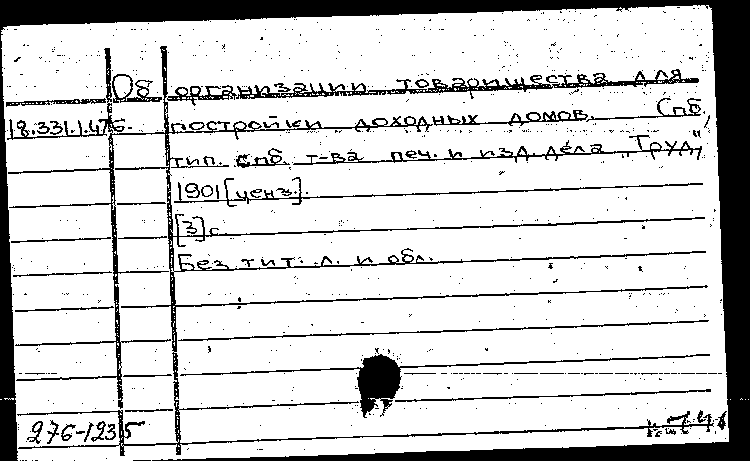 Об организации товарищества для
18.331.1.476. постройки доходных домов. Спб,
тип. Спб. т-ва печ. и изд. дела "Труд",
1901 [ценз.].
[3] с.
Без тит. л. и обл.
276-1235